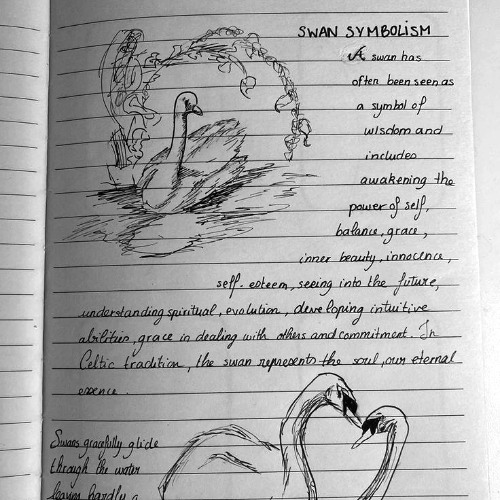 SWAN SYMBOLISM
A swan has
often been seen as
a symbol of
wisdom and
includes
awakening the
power of self,
balance, grace,
inner beauty, innocence,
self-esteem, seeing into the future,
understanding spiritual, evolution, developing intuitive
abilities, grace in dealing with others and commitment. In
Celtic tradition, the swan represents the soul, our eternal
essence.
Swans gracefully glide
through the water
leaving hardly a